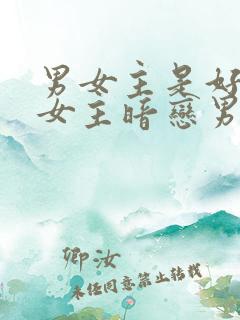 男女主是好
女主暗戀男
卿汝
未经同意禁止转载